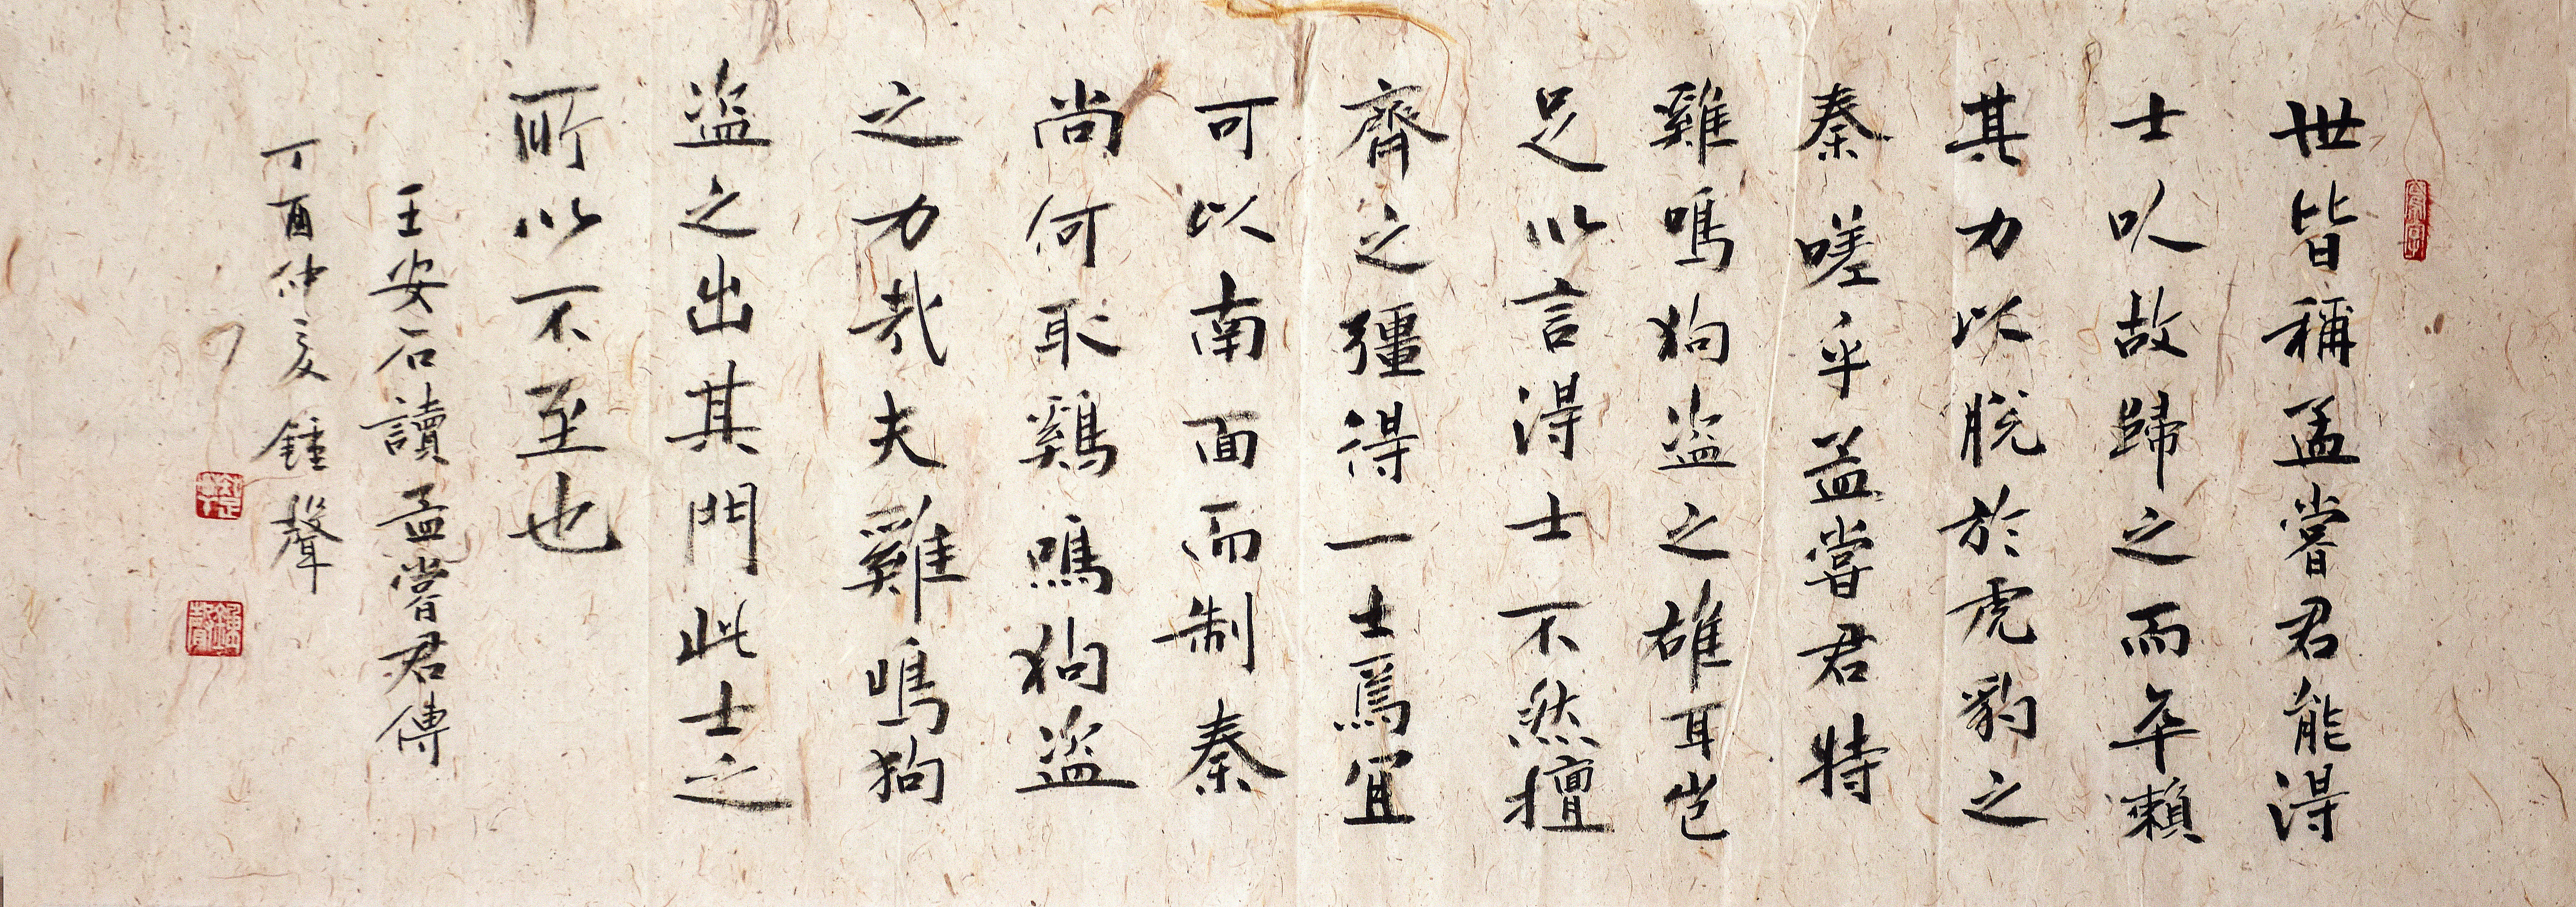 世皆稱孟嘗君能得
士以故歸之而卒賴
其力以脫於虎豹之
秦嗟乎孟嘗君特
雞鳴狗盜之雄耳豈
足以言得士不然擅
齊之彊得一士焉宜
可以南面而制秦
尚何取鷄鳴狗盜
之力哉夫雞鳴狗
盜之出其門此士之
所以不至也
王安石讀孟嘗君傳
丁酉仲夏鍾聲